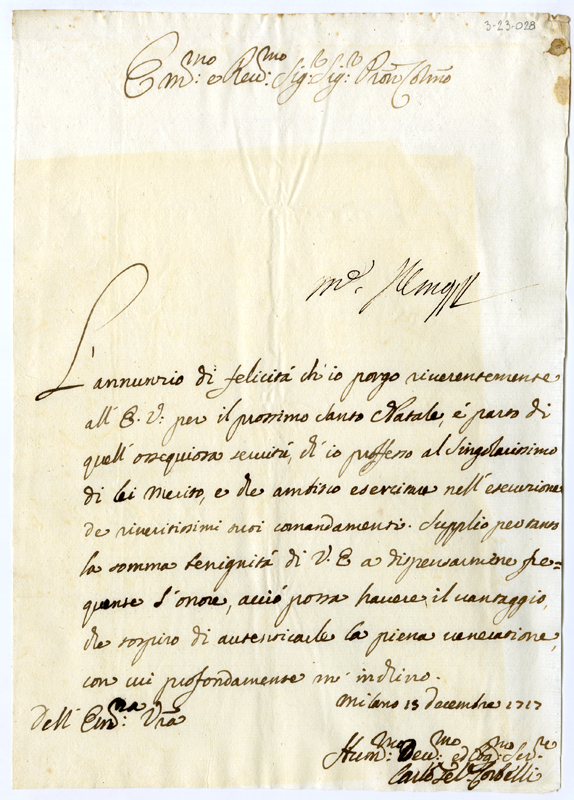 3-23-028
Em:mo e Rev:mo Sig:r Sig:r Pron Colmo
L'annunzio di felicità ch'io porgo riverentemente
all'E. V: per il prossimo Santo Natale, é parto di
quell'ossequiosa servitù, ch'io professo al singolarissimo
di lei merito, e che ambisco esercitare nell'esecuzione
de riveritissimi suoi comandamenti. Supplico pertanto
la somma benignità di V. E a dispensarmene fre=
quente l'onore, acciò possa havere il vantaggio,
che sospiro di autenticarle la piena venerazione,
con cui profondamente m'inchino.
Milano 15 Decembre 1717
Dell'Em:ma Vra
Hum:mo Dev:mo ed Obg:mo Ser:re
Carlo